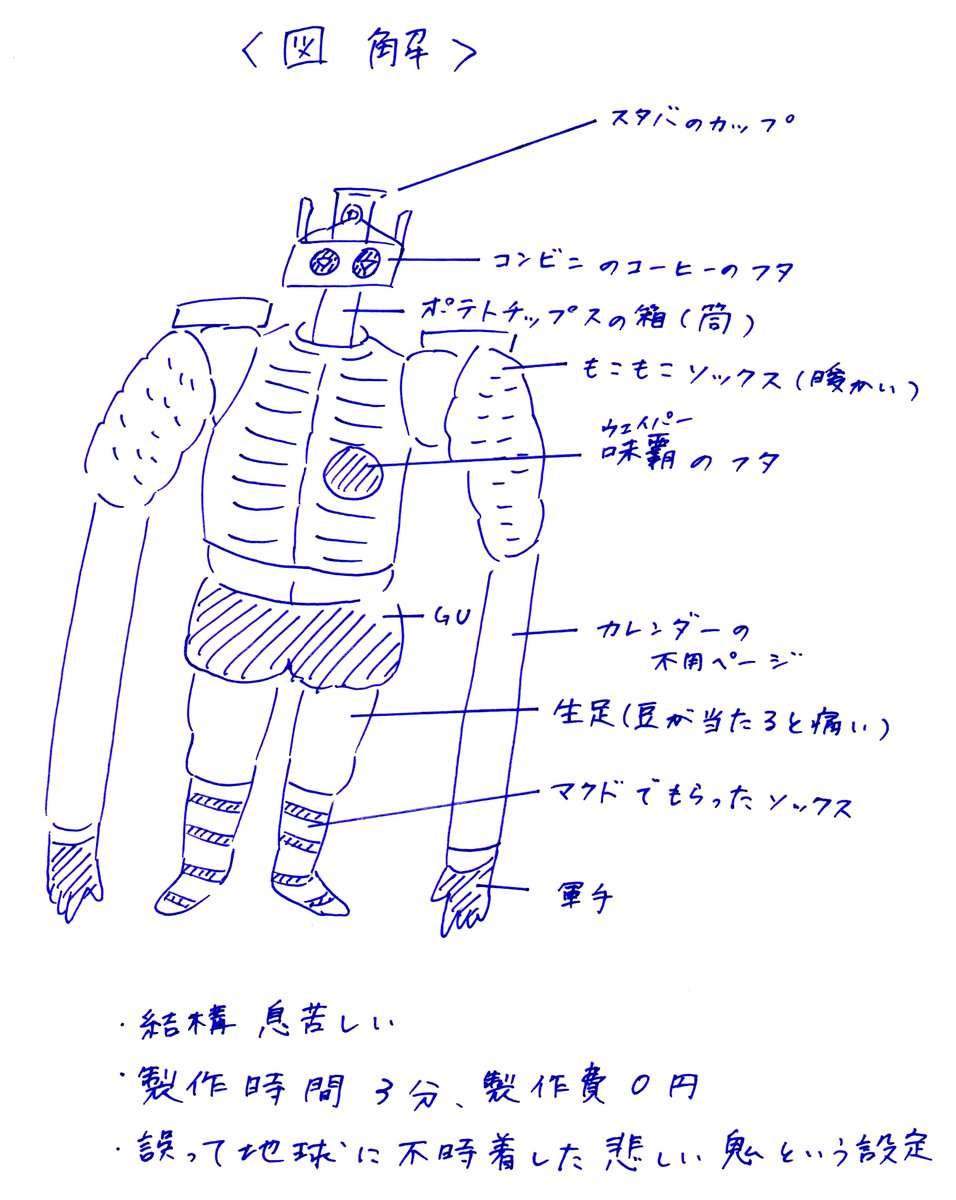 <図 解>
スタバのカップ
コンビニのコーヒーのフタ
ポテトチップスの箱(筒)
もこもこソックス(暖かい)
ウェイパー
味覇のフタ
GU
カレンダーの
不用ページ
生足(豆が当たると痛い)
マクドでもらったソックス
軍手
・結構 息苦しい
・製作時間 3分、製作費 0円
・誤って地球に不時着した悲しい鬼という設定